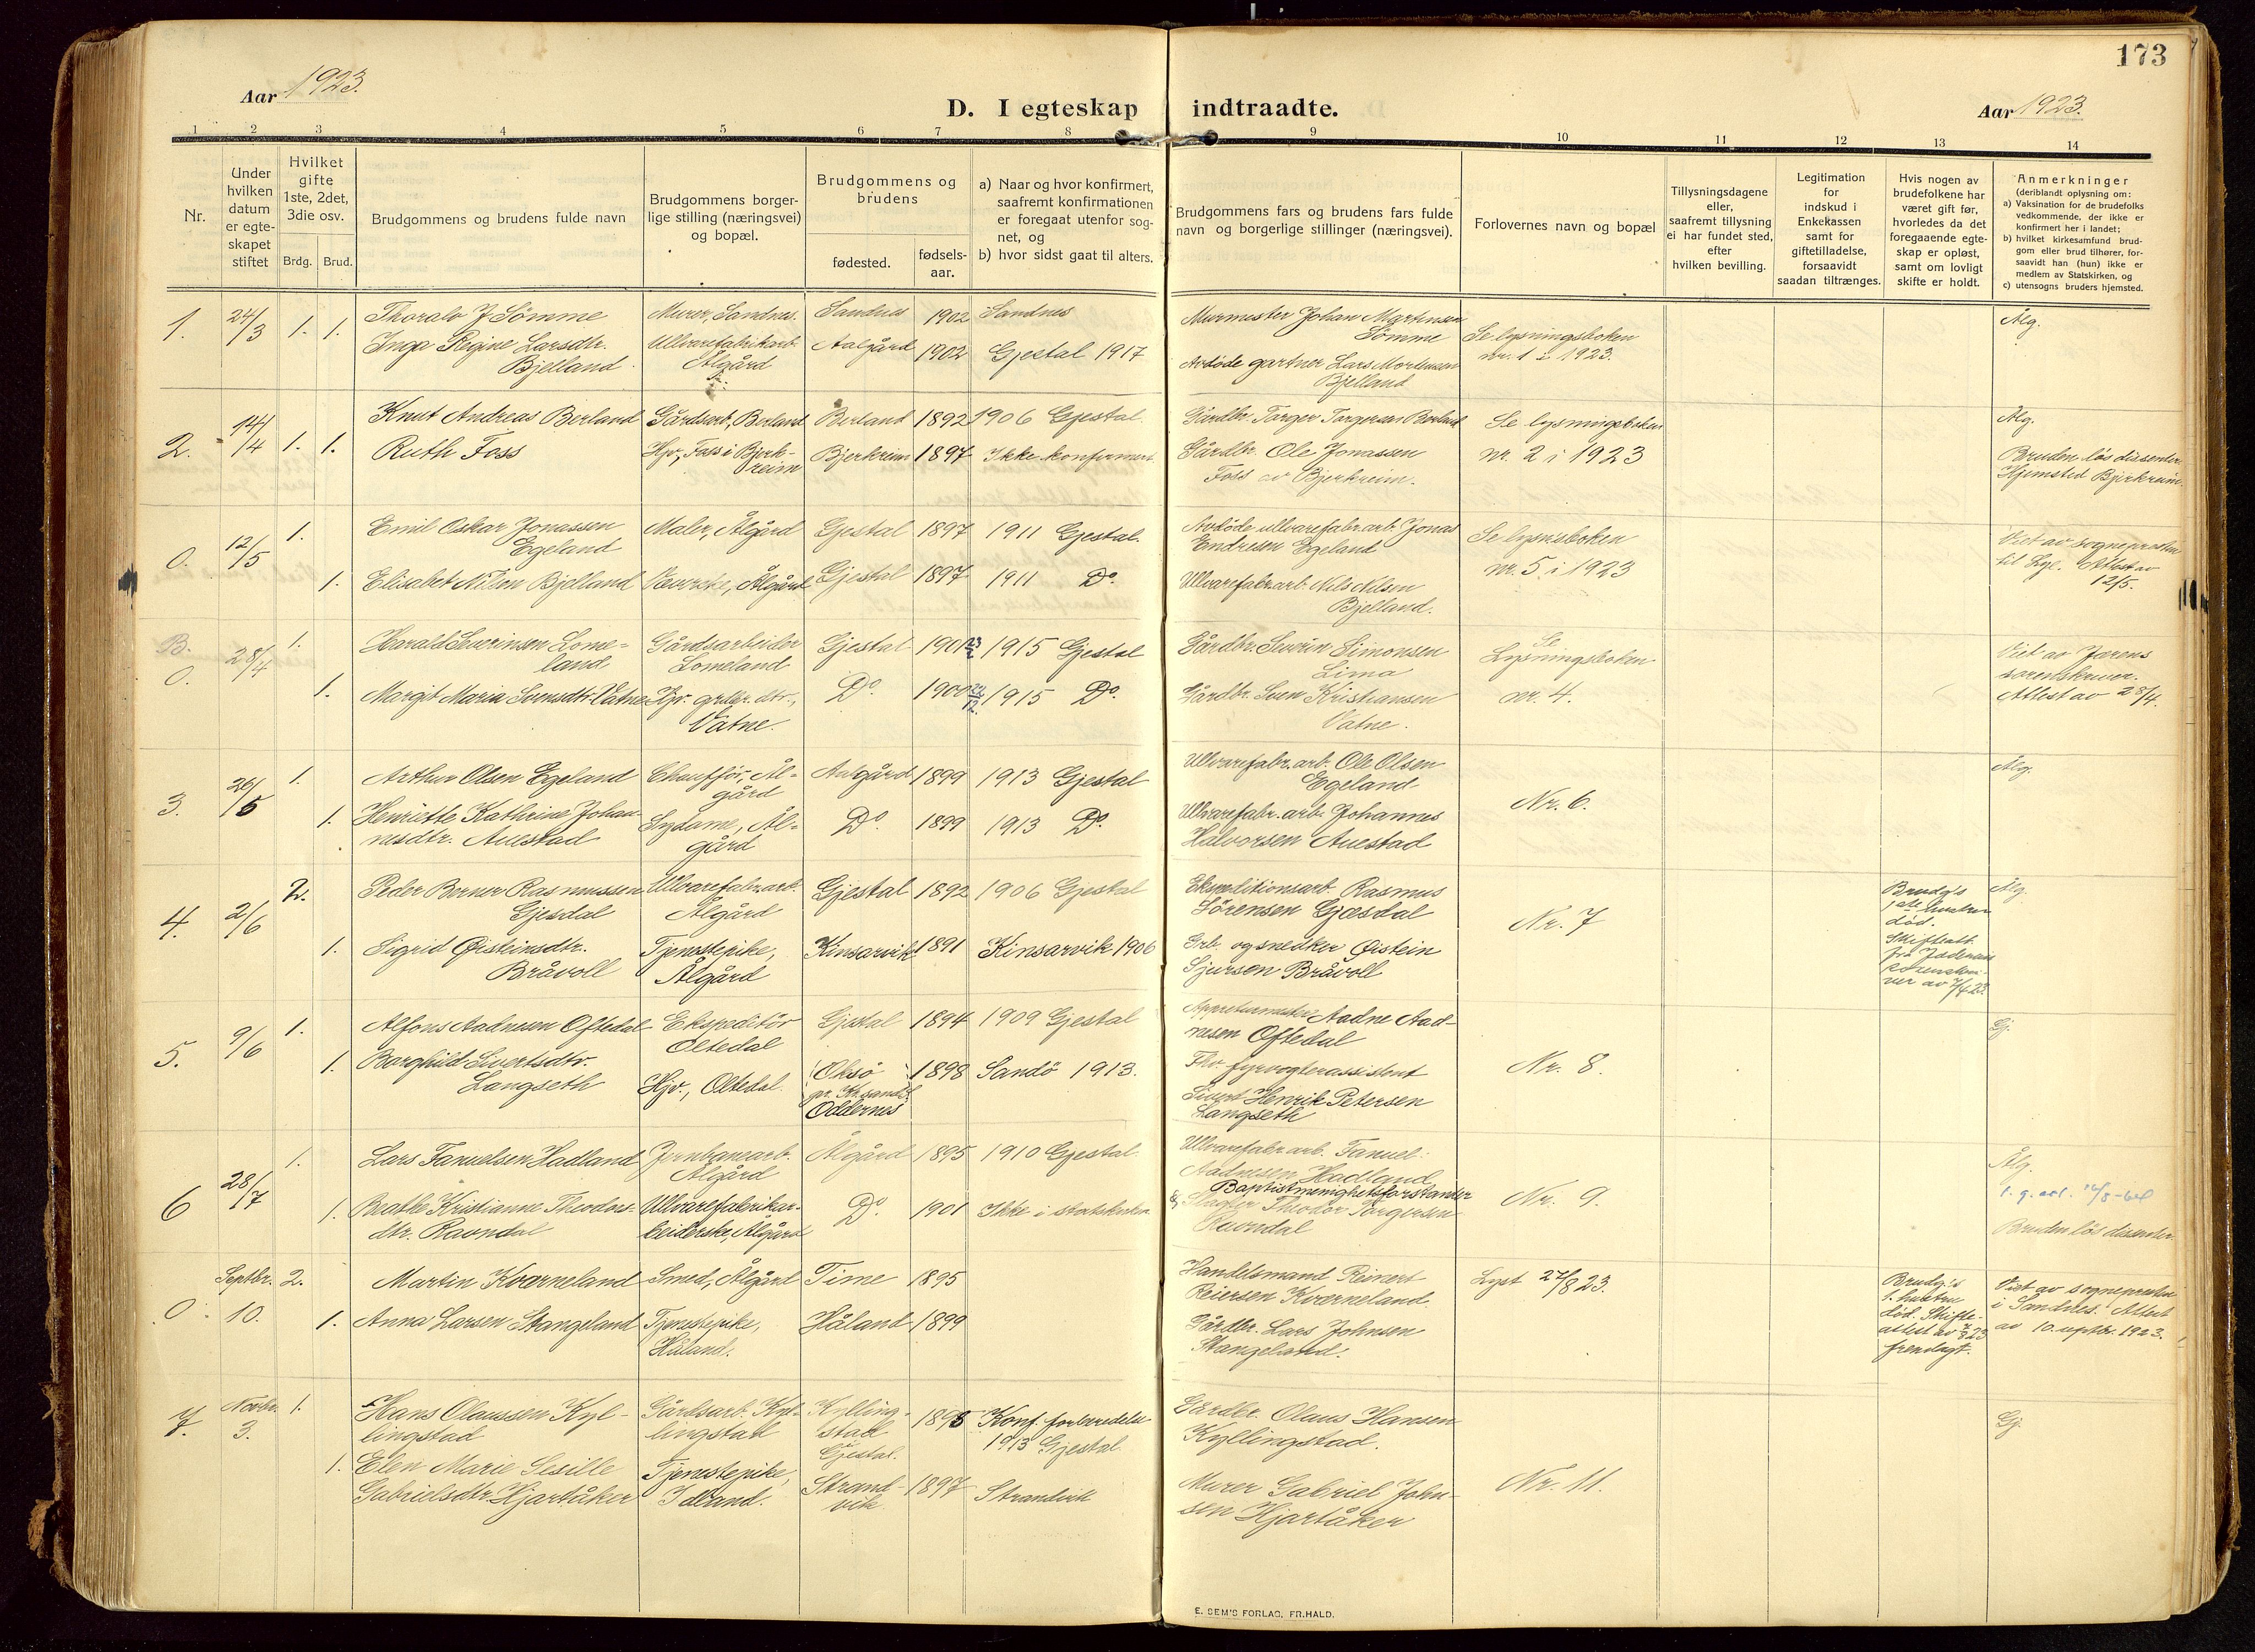 173
Aar 1923.
D. I egteskap indtraadte.
Aar 1923.
1 2 3 4 5 6 7 8 9 10 11 12 13 14
Nr.
Under
hvilken
datum
er egte-
skapet
stiftet
Hvilket
gifte
1ste, 2det,
3die osv.
Brdg. Brud.
Brudgommens og brudens fulde navn
Brudgommens borger-
lige stilling (næringsvei)
og bopæl.
Brudgommens og
brudens
fødested.
fødsels-
aar.
a) Naar og hvor konfirmert,
saafremt konfirmationen
er foregaat utenfor sog-
net, og
b) hvor sidst gaat til alters.
Brudgommens fars og brudens fars fulde
navn og borgerlige stillinger (næringsvei).
Forlovernes navn og bopæl
Tillysningsdagene
eller,
saafremt tillysning
ei har fundet sted,
efter
hvilken bevilling.
Legitimation
for
indskud i
Enkekassen
samt for
giftetilladelse,
forsaavidt
saadan tiltrænges.
Hvis nogen av
brudefolkene har
været gift før,
hvorledes da det
foregaaende egte-
skap er opløst,
samt om lovligt
skifte er holdt.
Anmerkninger
(deriblandt oplysning om:
a) Vaksination for de brudefolks
vedkommende, der ikke er
konfirmert her i landet;
b) hvilket kirkesamfund brud-
gom eller brud tilhører, for-
saavidt han (hun) ikke er
medlem av Statskirken, og
c) utensogns bruders hjemsted.
1. 24/3 1. 1. Thoralv J Sömme Murer, Sandnes. Sandnes 1902 Sandnes Murmester Johan Martinsen Ålg.
Sömme Se lysningsboken
Inga Regine Larsdtr. Ullvarefabrikarb. Aalgård 1902 Gjestal 1917 nr. 1 i 1923.
Bjelland Ålgård Avdöde gartner Lars Mortensen
Bjelland
2. 14/4 1. 1. Knut Andreas Berland Gårdsarb, Berland Berland 1892 1906 Gjestal. Gårdbr. Torger Torgersen Berland Se lysningsboken Ålg.
Ruth Foss Hjv, Foss i Bjerk- Bjerkreim 1897 Ikke konfirmert. Gårdbr. Ole Jonassen nr. 2 i 1923 Bruden lös dissenter
reim Foss av Bjerkreim. Hjemsted Bjerkreim.
0. 12/5 1. Emil Oskar Jonassen Maler, Ålgård Gjestal 1897 1911 Gjestal. Avdöde ullvarefabr.arb. Jonas Se lysn.sboken Viet av sognepresten
Egeland Endresen Egeland nr. 5 i 1923 Attest av
1. Elisabet Nilsen Bjelland Ålgård Gjestal 1897 1911 Do. Ullvarefabr.arb. Nils Nilsen 12/5.
Bjelland.
B.
0. 28/4 1. Harald Severinsen Lome- Gårdsarbeider Gjestal 1901 1915 Gjestal Gårdbr. Severin Simonsen Se Viet av Jærens
land Lomeland Lima Lysningsboken sorenskriver.
1. Margit Maria Svensdtr. Vatne Hjv. grbr. dtr., Do. 1900 1915 Do. Gårdbr. Sven Kristiansen nr. 4. Attest av 28/4.
Vatne. Vatne.
3. 26/5 1. Arthur Olsen Egeland Chauffør, Ål- Aalgård 1899 1913 Gjestal Ullvarefabr.arb. Ole Olsen Ålg.
gård Egeland Nr. 6.
1. Henriette Kathrine Johan- Sydame, Ål- Do. 1899 1913 Do. Ullvarefabr.arb. Johannes
nesdtr. Auestad gård Halvorsen Auestad
4. 2/6 2. Peder Berner Rasmussen Ullvarefabr.arb. Gjestal 1892 1906 Gjestal Ekspeditionsarb. Rasmus Brudg's Ålg.
Gjesdal Ålgård Sörensen Gjæsdal Nr. 7 1ste hustru
død.
1. Sigrid Øisteinsdtr. Tjenestepike, Kinsarvik 1891 Kinsarvik 1906 Grb. og snedker Øistein Skifteatt.
Bråvoll Ålgård Sjursen Bråvoll fra Jæderens
sorenskri-
ver av
5. 9/6 1. Alfons Aadnesen Oftedal Ekspeditör Gjestal 1894 1909 Gjestal Appreturmester Aadne Aad- Gj.
Oltedal nesen Oftedal
1. Borghild Sivertsdtr. Hjv., Oltedal. Oksö 1898 Sandö 1913. Fhv. fyrvogterassistent Nr. 8.
Langseth pr. Kr.sand S. Sivert Henrik Petersen
Oddernes Langseth
6 28/7 1. Lars Fanuelsen Hadland Jernbanearb. Ålgård 1895 1910 Gjestal. Ullvarefabr.arb. Fanuel Ålg.
Ålgård Aadnesen Hadland
1. Beathe Kristianne Theodors- Ullvarefabrikar- Do. 1901 Ikke i statskirken Baptistmenighetsforstander Nr. 9.
dtr. Ravndal beiderske, Ålgård & Slagter Theodor Torgersen
Ravndal Bruden lös dissenter.
0 Septbr. 2. Martin Kværneland Smed, Ålgård Time 1895 Handelsmand Reinert Lyst 27/8 23. Brudg's Viet av sognepresten
10. Reiersen Kværneland. 1. hustru i Sandnes. Attest
1. Anna Larsen Stangeland Tjenestepike, Håland 1899 Gårdbr. Lars Johnsen död. Skifte- av 10. septbr. 1923.
Håland. Stangeland. attest av
fremlagt.
7. Novbr. 1. Hans Olaussen Kyl- Gårdsarb. Kyl- Kylling- 1898 Konf. forberedelse Gårdbr. Olaus Hansen Gj.
3. lingstad lingstad stad 1913 Gjestal Kyllingstad.
Gjestal.
1. Elen Marie Sesille Tjenestepike, Strand- 1897 Strandvik Murer Gabriel John- Nr. 11.
Gabrielsdtr. Hjartåker vik sen Hjartåker
E. SEM'S FORLAG, FR.HALD.